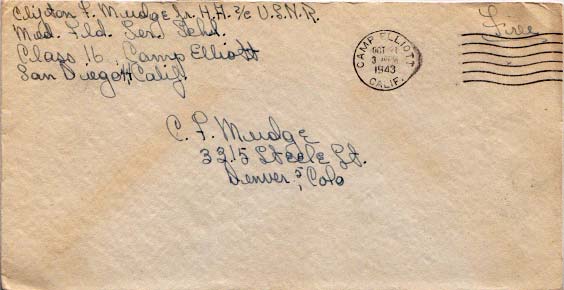 Clifton P. Mudge Jr. H.A. 2/c U.S.N.R.
Med. Fld. Ser. Schl.
Class 16, Camp Elliott
San Diego 44 Calif.
CAMP ELLIOTT
OCT 21
3
1943
CALIF.
Free
C. P. Mudge
3315 Steele St.
Denver 5, Colo